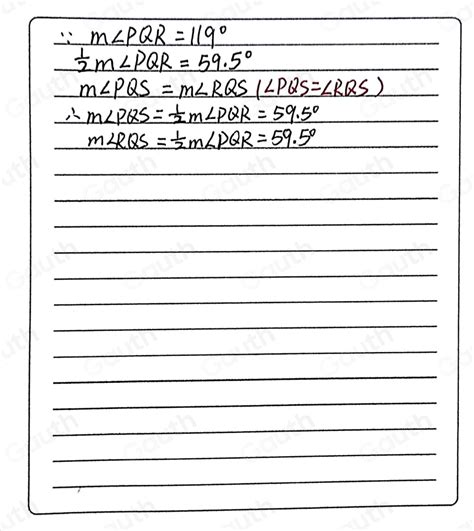 ∵ m∠PQR = 119°
½m∠PQR = 59.5°
m∠PQS = m∠RQS (∠PQS=∠RQS)
∴ m∠PQS = ½m∠PQR = 59.5°
m∠RQS = ½m∠PQR = 59.5°
Gauth